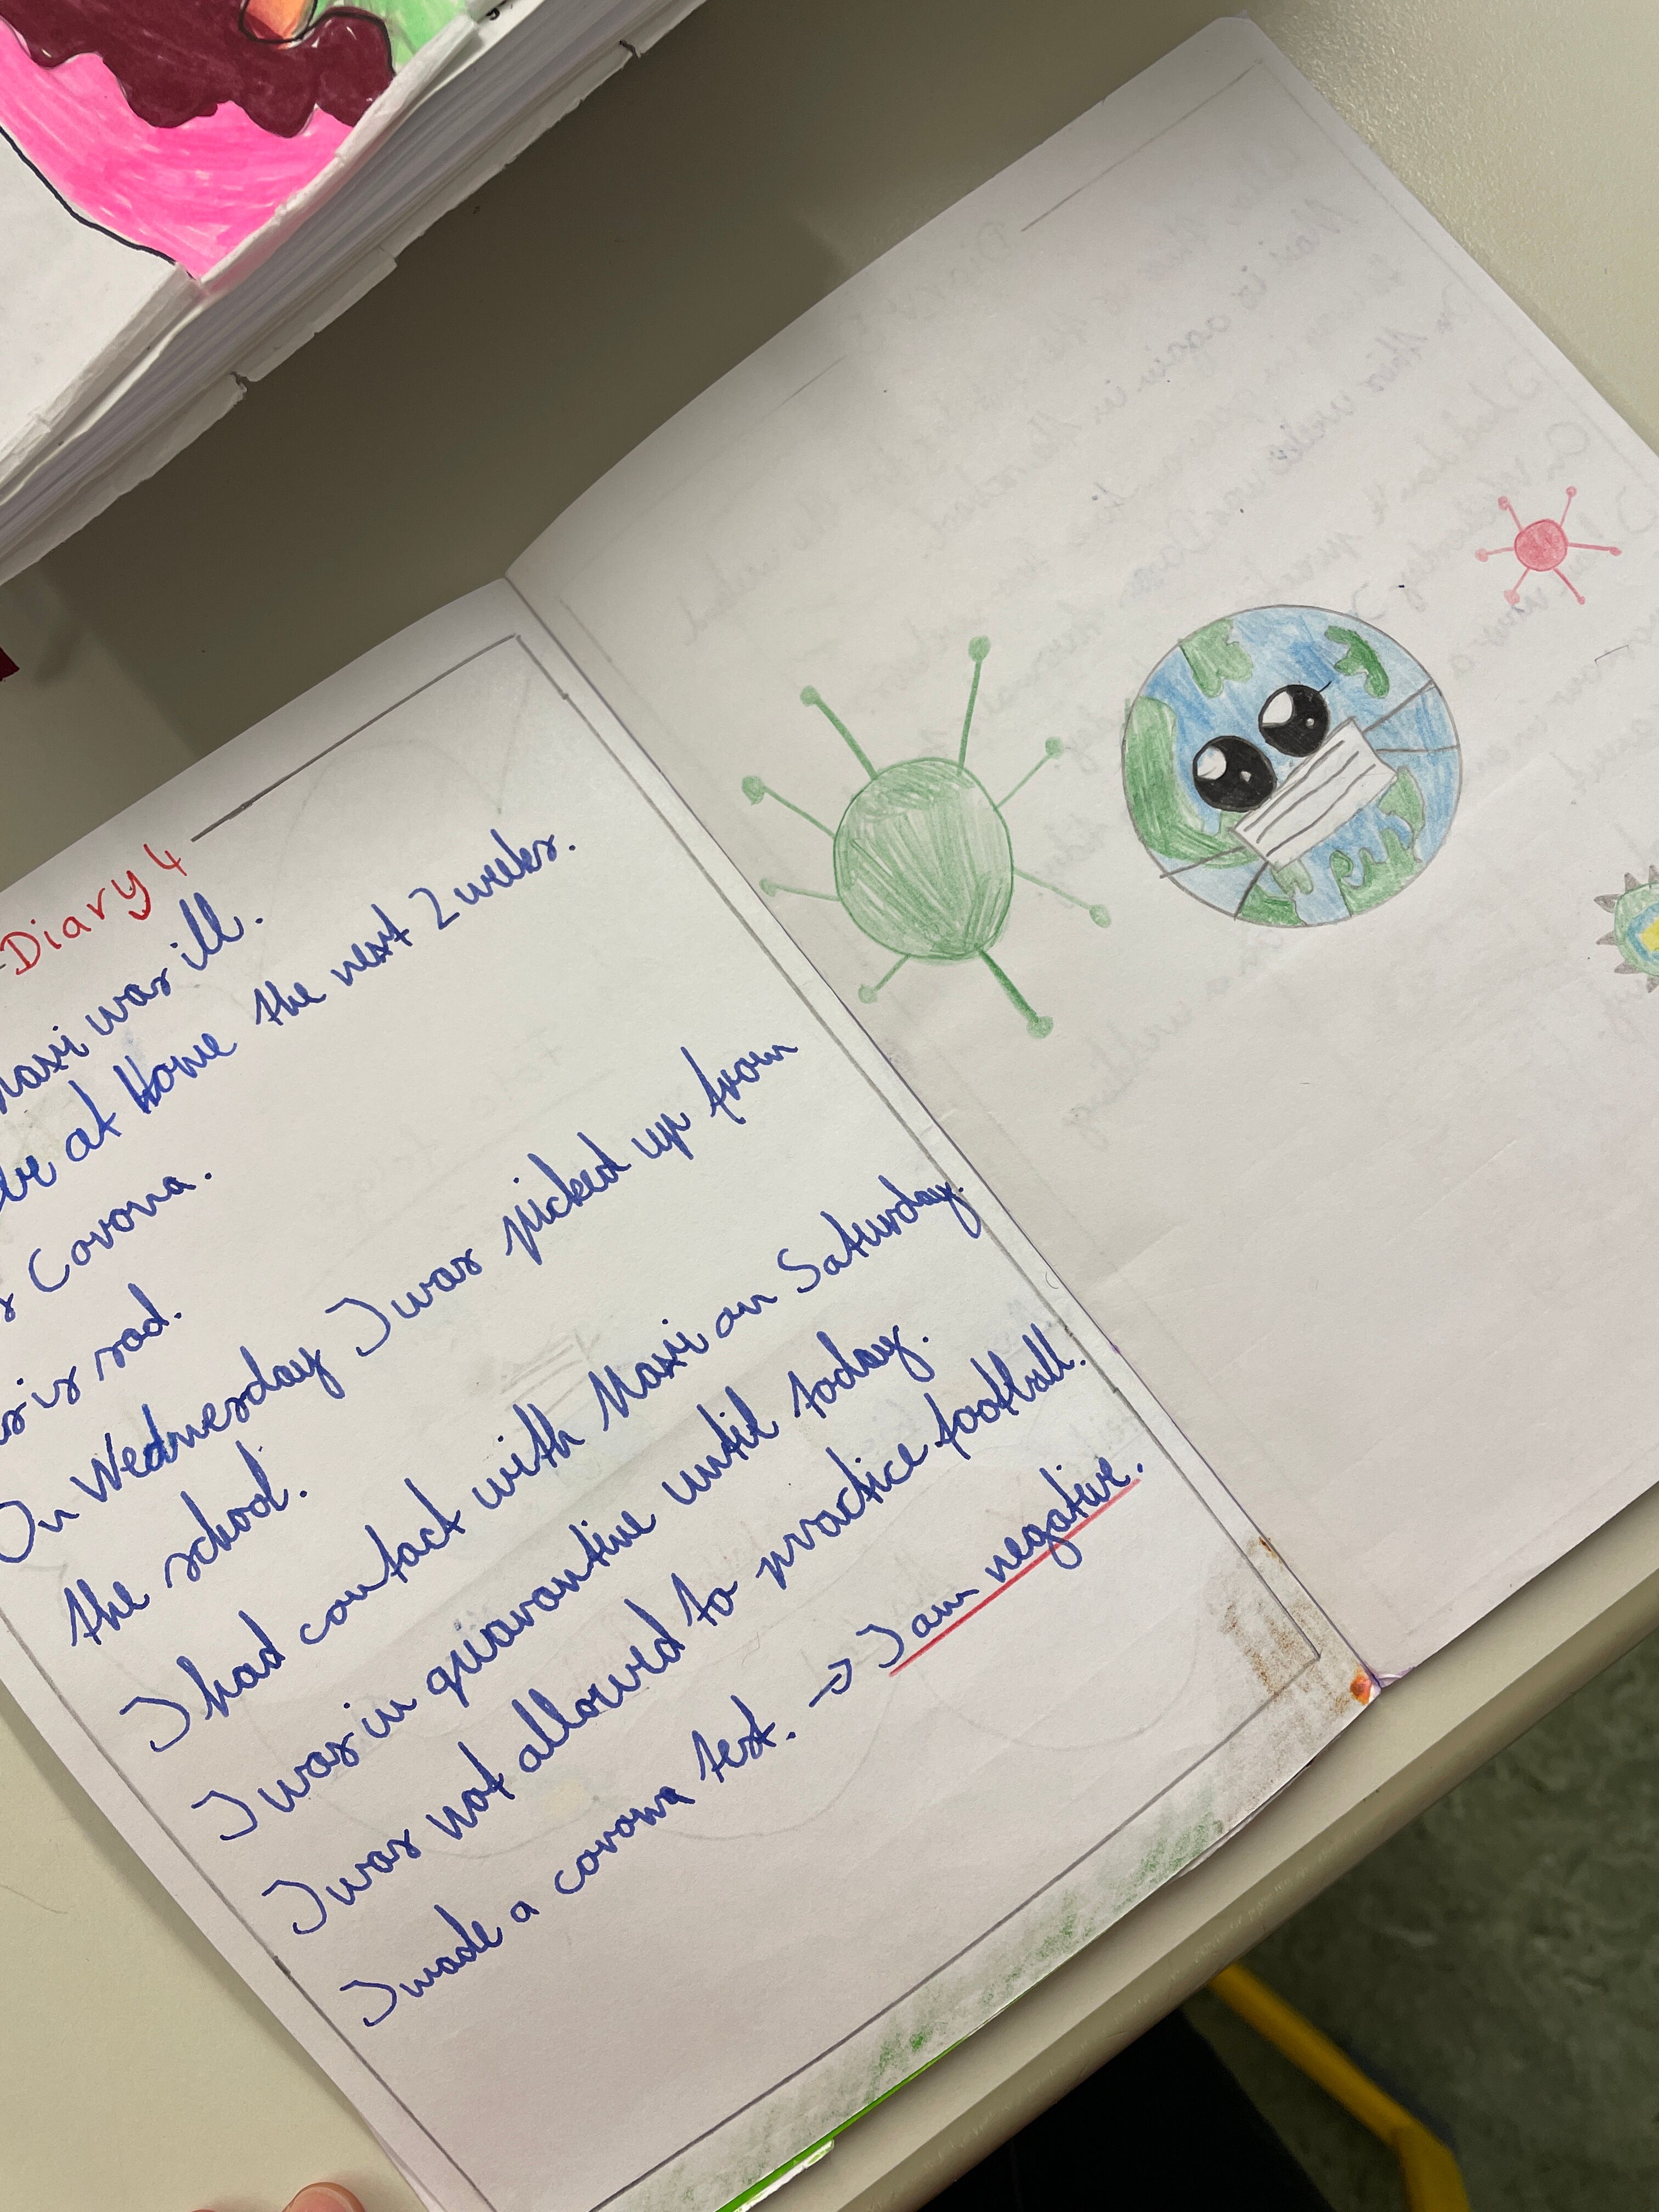 -Diary 4
Maxi was ill.
be at Home the next 2 weeks.
Corona.
is sad.
On Wednesday I was picked up from
the school.
I had contact with Maxi on Saturday.
I was in quarantine until today.
I was not allowed to practice football.
I made a corona test. → I am negative.